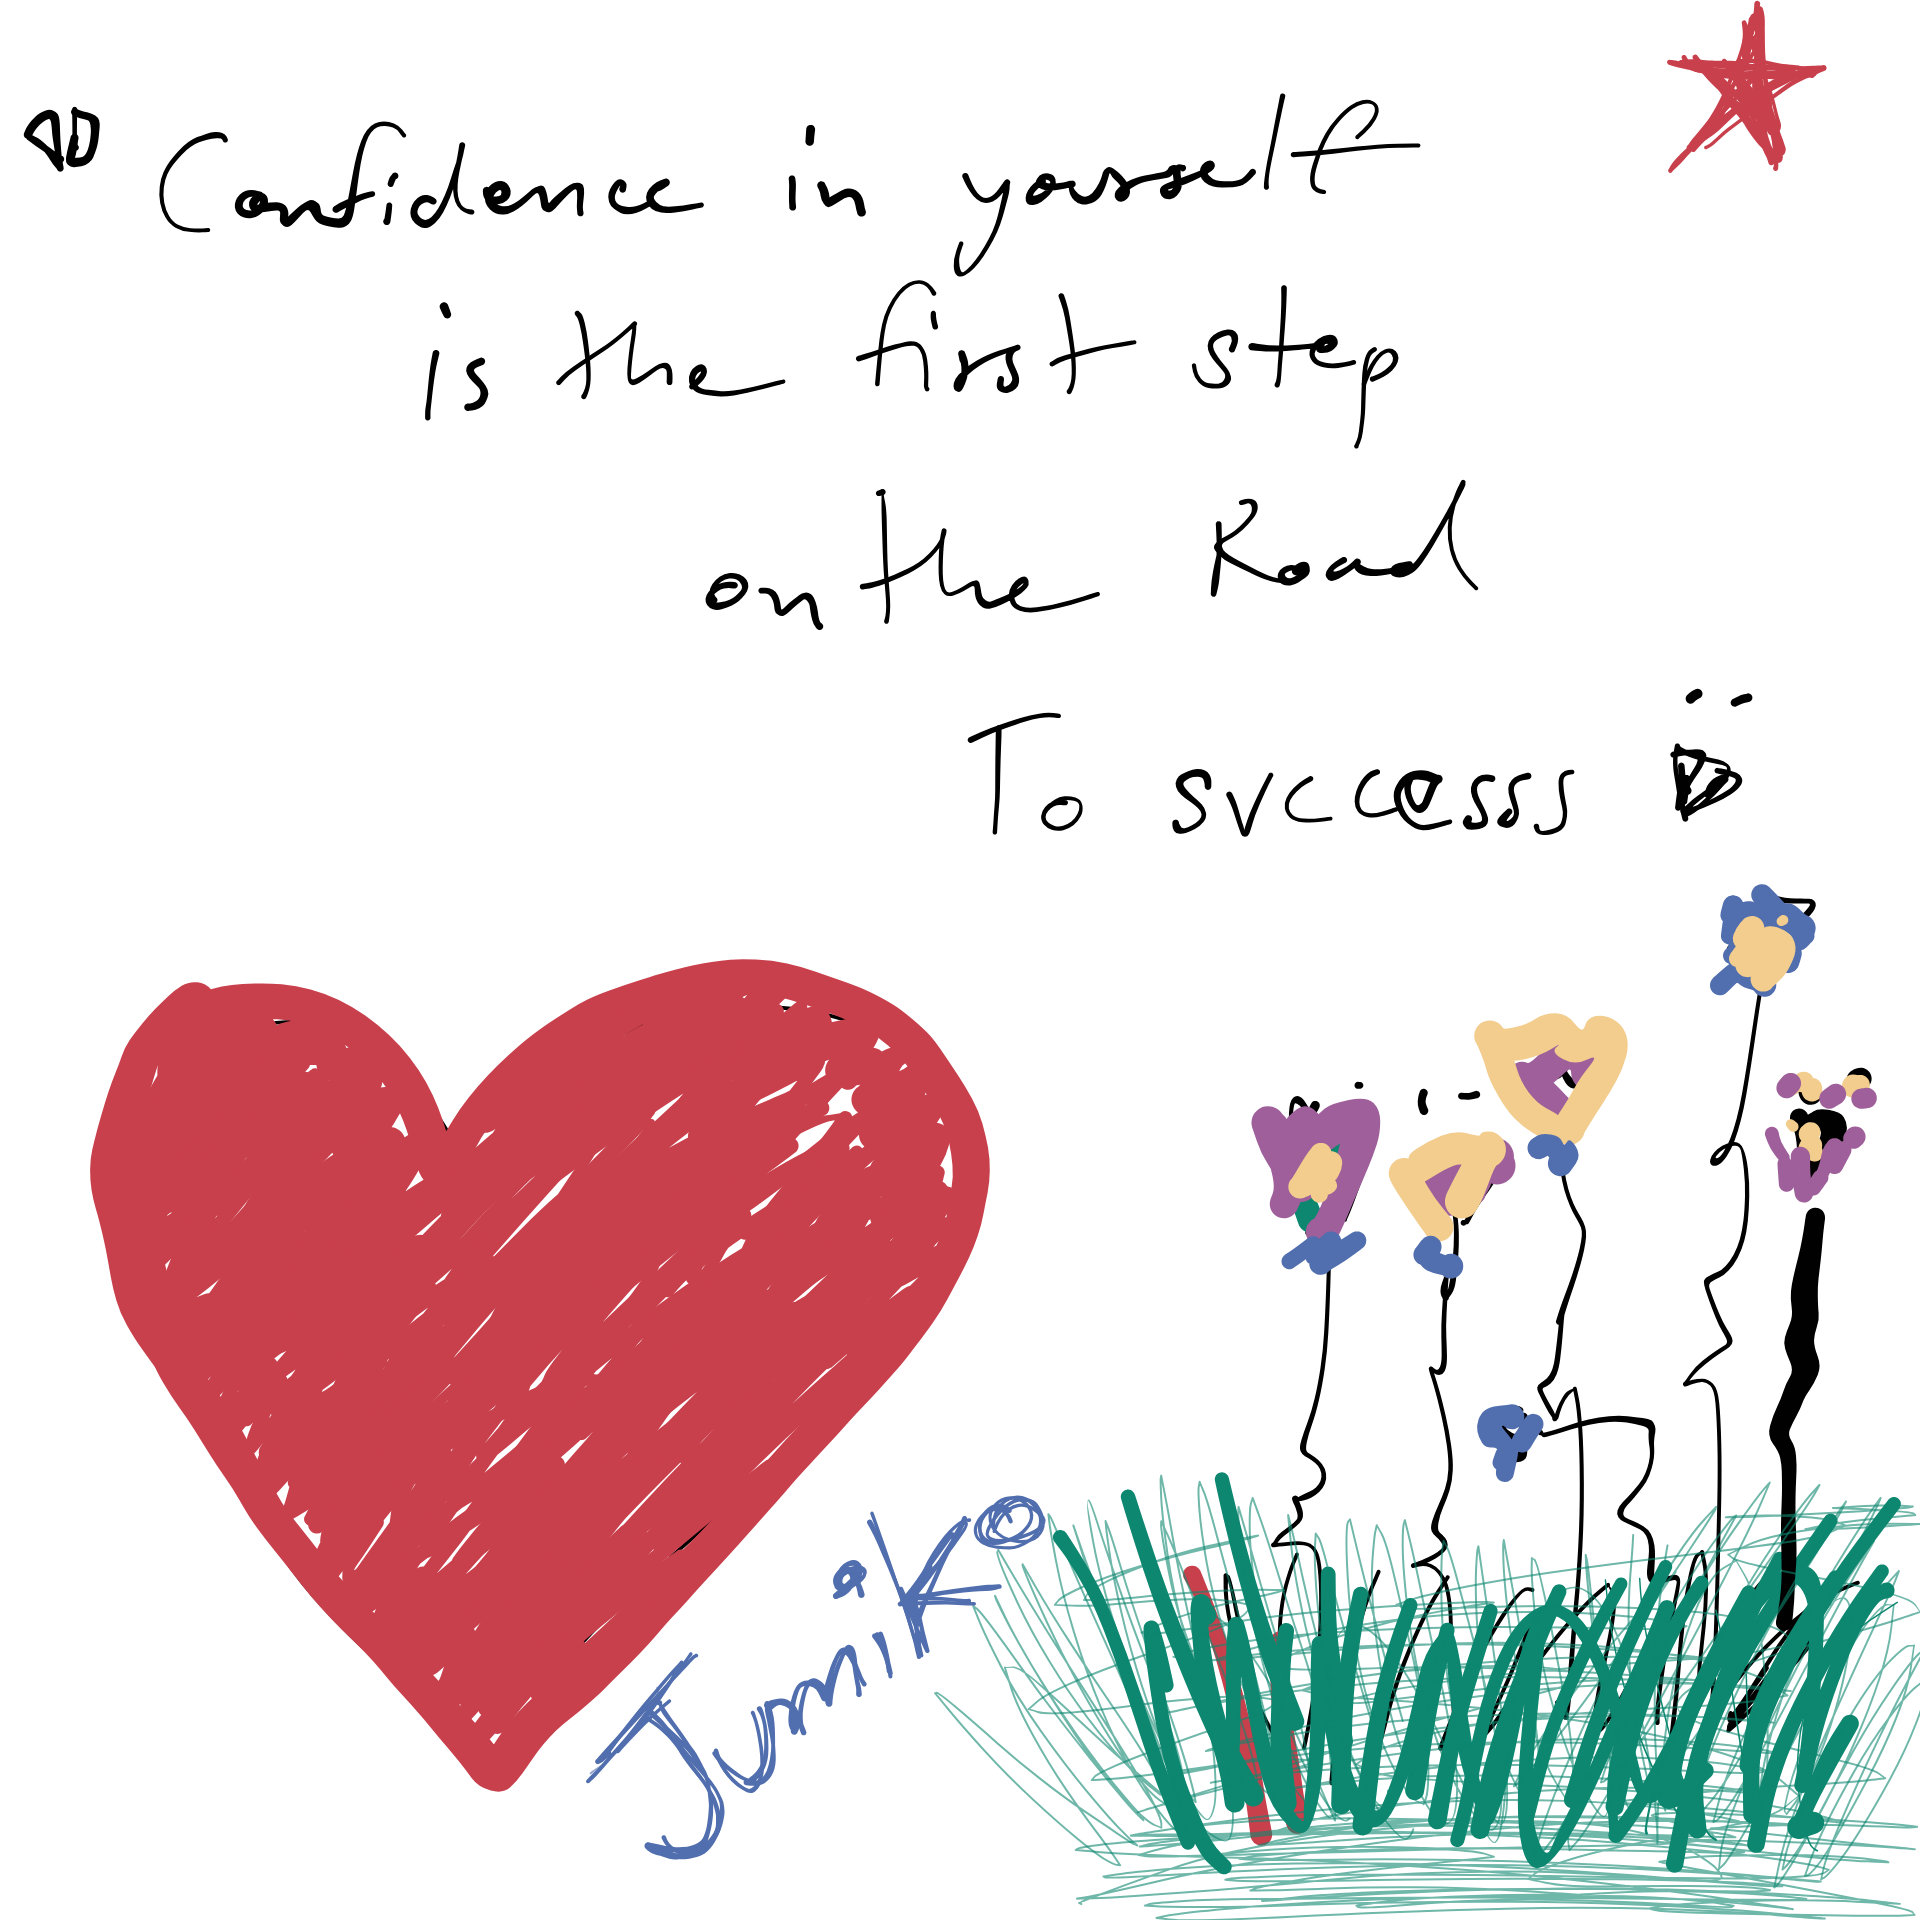 "Confidence in yourself
is the first step
on the Road
To svccesss "
JumiK